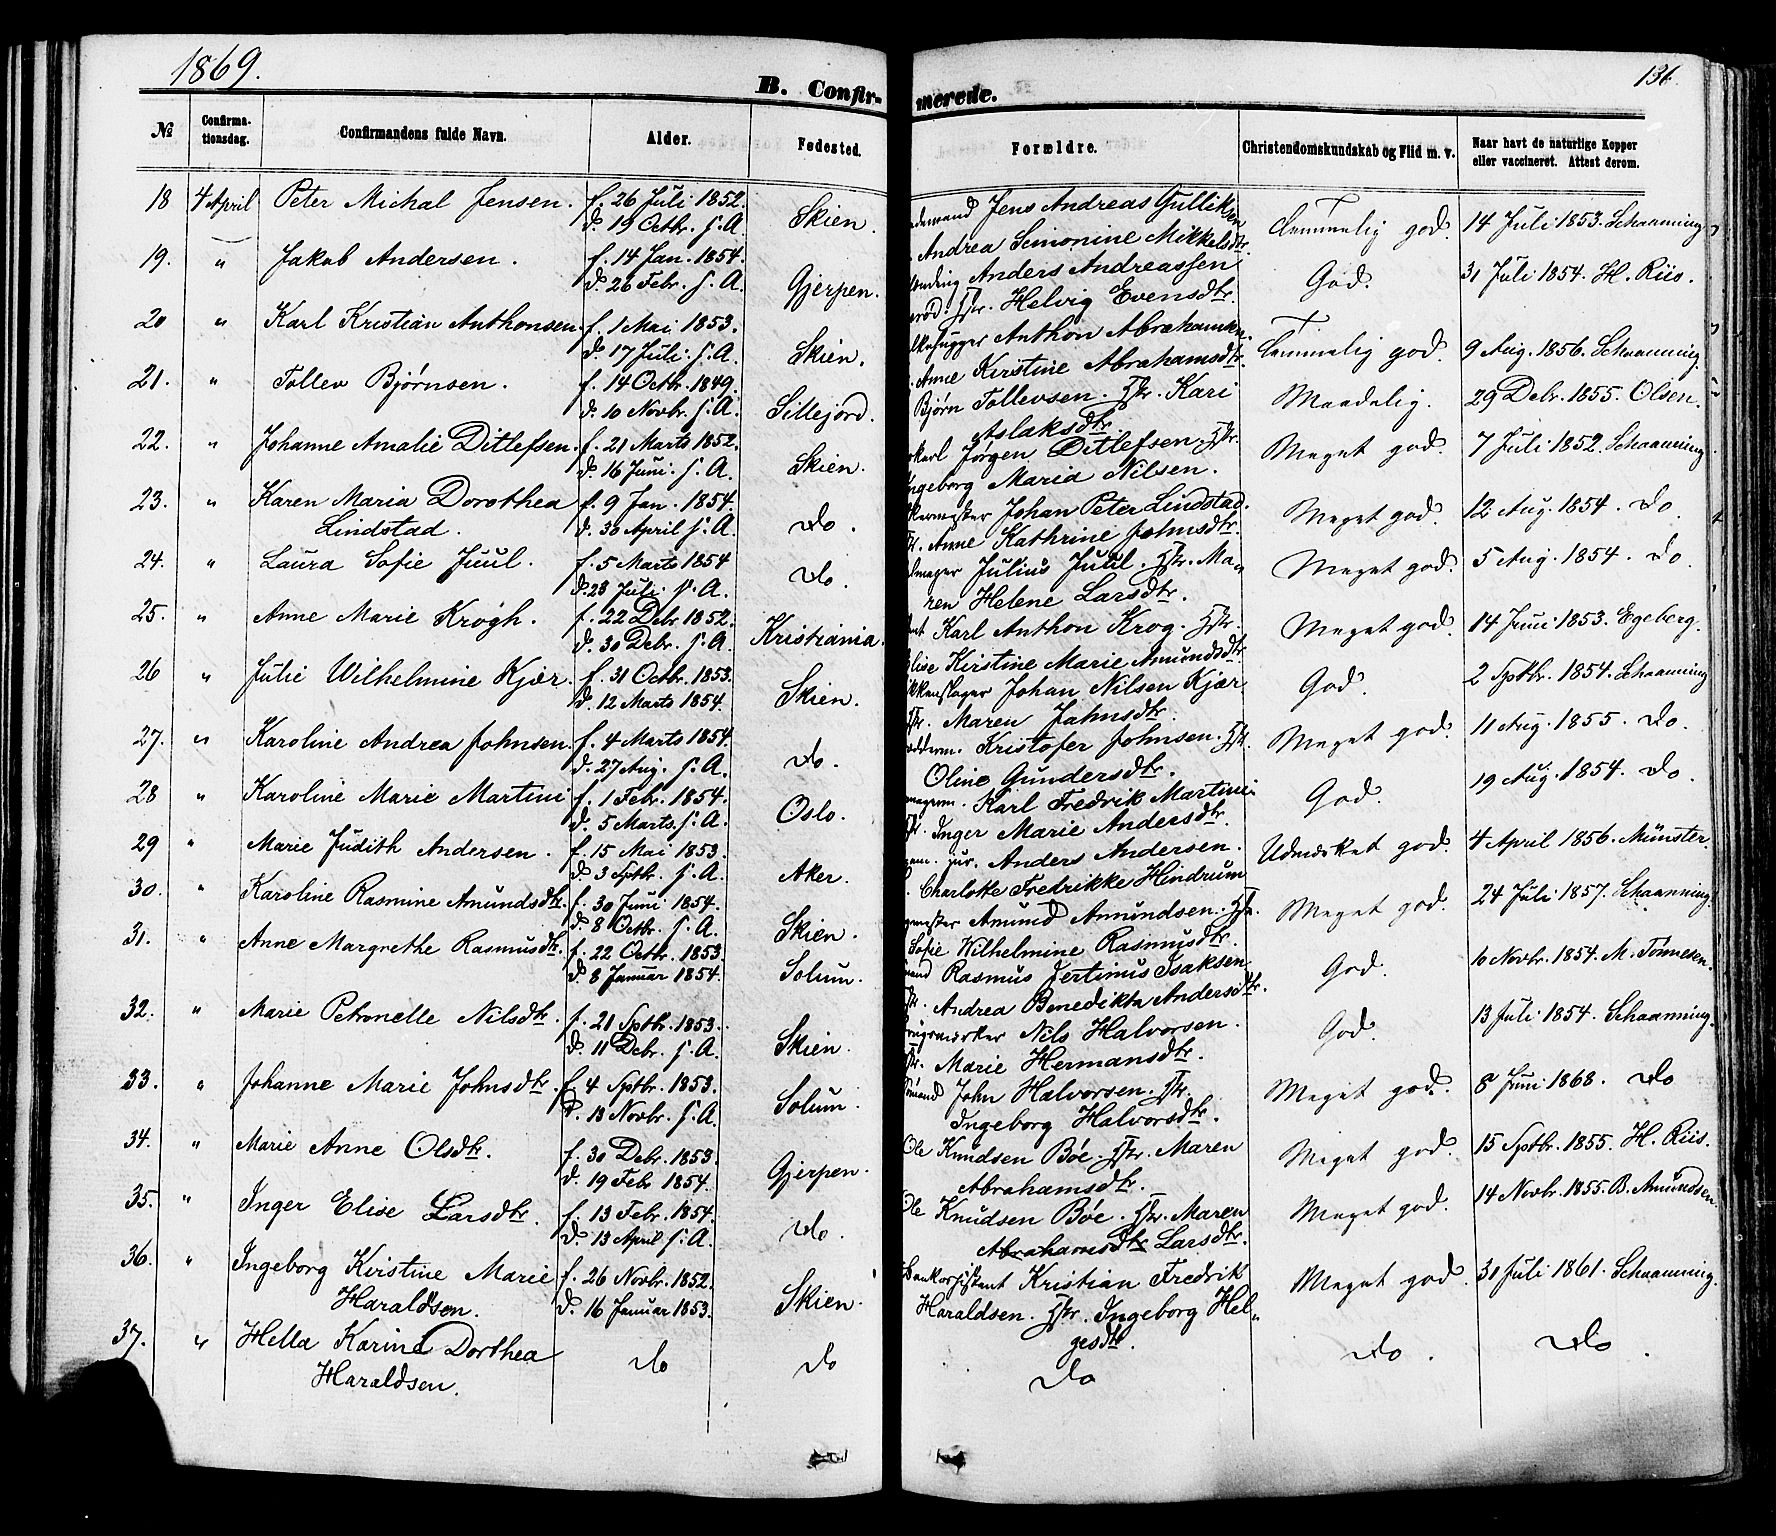 1869.
136
B. Confir-
merede.
№
Confirma-
tionsdag.
Confirmandens fulde Navn.
Alder.
Fødested.
Forældre.
Christendomskundskab og Flid m. v.
Naar havt de naturlige Kopper
eller vaccineret. Attest derom.
18 4 April Peter Michal Jensen. f. 26 Juli 1852. Jens Andreas Gulliksen
d. 19 Octbr. s. A. Skien. Andrea Simonine Mikkelsdtr. Temmelig god. 14 Juli 1853. Schaanning
19. " Jakob Andersen. f. 14 Jan. 1854. Anders Andreassen
d. 26 Febr. s. A. Gjerpen. Helvig Evensdtr. God. 31 Juli 1854. H. Riis.
20 " Karl Kristian Anthonsen. f. 1 Mai 1853. Anthon Abrahamsen
d. 17 Juli. s. A. Skien. Anne Kirstine Abrahamsdtr. Temmelig god. 9 Aug. 1856. Schaanning
21. " Tollev Bjørnsen. f. 14 Octbr. 1849. Bjørn Tollevsen. Hstr. Kari
d. 10 Novbr. s. A. Sillejord. Aslaksdtr. Maadelig. 29 Debr. 1855. Olsen.
22. " Johanne Amalie Ditlefsen. f. 21 Marts 1852. Jørgen Ditlefsen. Hstr.
d. 16 Juni. s. A. Skien. Ingeborg Maria Nilsen. Meget god. 7 Juli 1852. Schaanning
23. " Karen Maria Dorothea f. 9 Jan. 1854. Johan Peter Lindstad.
Lindstad. d. 30 April s. A. Do. Anne Kathrine Johnsdtr. Meget god. 12 Aug. 1854. Do
24. " Laura Sofie Juul. f. 5 Marts 1854 Julius Juul. Hstr. Ma-
d. 23 Juli. s. A. Do. ren Helene Larsdtr. Meget god. 5 Aug. 1854. Do
25. " Anne Marie Krogh. f. 22 Debr 1852. Karl Anthon Krog. Hstr.
d. 30 Debr. s. A. Kristiania. Elise Kirstine Marie Amundsdtr. Meget god. 14 Juni 1853. Egeberg.
26 " Julie Wilhelmine Kjær. f. 31 Octbr. 1853. Johan Nilsen Kjær
d. 12 Marts 1854. Skien. Hstr. Maren Jahnsdtr. God. 2 Septbr. 1854. Schaanning
27. " Karoline Andrea Johnsen. f. 4 Marts 1854. Kristofer Johnsen. Hstr.
d. 27 Aug. s. A. Do. Oline Gundersdtr. Meget god. 11 Aug. 1855. Do.
28 " Karoline Marie Martini f. 1 Febr. 1854. Karl Fredrik Martini
d. 5 Marts. s. A. Oslo. Hstr. Inger Marie Andersdtr. God. 19 Aug. 1854. Do.
29 " Marie Judith Andersen. f. 15 Mai 1853. Anders Andersen.
d. 3 Sptbr. s. A. Aker. Charlotte Fredrikke Hindrum Udmærket god. 4 April 1856. Münster.
30. " Karoline Rasmine Amundsdtr. f. 30 Juni 1854. Amund Amundsen. Hstr.
d. 8 Octbr. s. A. Skien. Sofie Wilhelmine Rasmusdtr. Meget god. 24 Juli 1857. Schaanning.
31. " Anne Margrethe Rasmusdtr. f. 22 Octbr. 1853. Rasmus Jertinus Isaksen
d. 8 Januar 1854. Solum. Hstr. Andrea Benedikta Andersdtr. God. 6 Novbr. 1854. M. Tønnesen.
32. " Marie Petronelle Nilsdtr. f. 21 Sptbr. 1853. Nils Halvorsen.
d. 11 Debr. s. A. Skien. Hstr. Marie Hermansdtr. God. 13 Juli 1854. Schaanning.
33. " Johanne Marie Johnsdtr. f. 4 Sptbr. 1853. Sømand John Halvorsen. Hstr.
d. 13 Novbr. s. A. Solum. Ingeborg Halvorsdtr. Meget god. 8 Juni 1868. Do
34. " Marie Anne Olsdtr. f. 30 Debr. 1853. Ole Knudsen Bøe. Hstr. Maren
d. 19 Febr 1854. Gjerpen. Abrahamsdtr. Meget god. 15 Sptbr. 1855. H. Riis.
35. " Inger Elise Larsdtr. f. 13 Febr. 1854. Ole Knudsen Bøe. Hstr. Maren
d. 13 April s. A. Do. Abrahamsdtr Larsdtr. Meget god. 14 Novbr. 1855. B. Amundsen
36. " Ingeborg Kirstine Marie f. 26 Novbr. 1852. Kristian Fredrik
Haraldsen. d. 16 Januar 1853. Skien. Haraldsen. Hstr. Ingeborg Hel- Meget god. 31 Juli 1861. Schaanning.
gesdtr.
37. " Hella Karine Dorthea
Haraldsen. Do Do Do Do. Do.